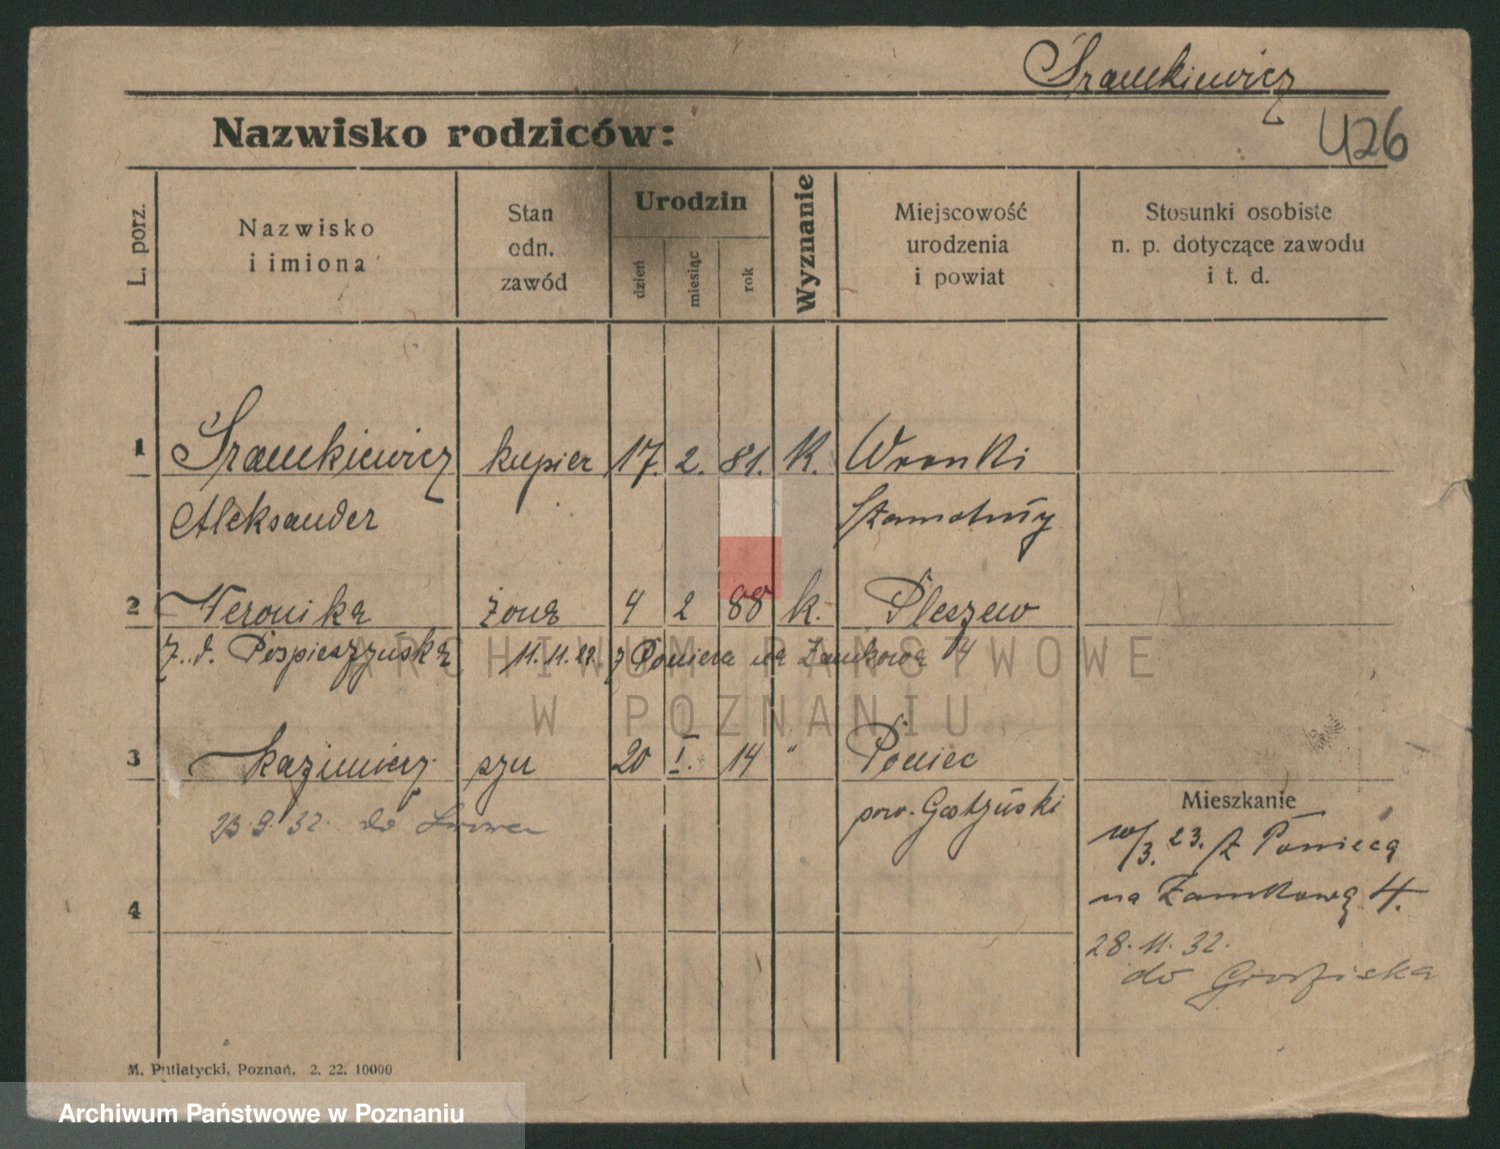 Śramkiewicz
426
Nazwisko rodziców:
L. porz.
Nazwisko
i imiona
Stan
odn.
zawód
Urodzin
dzień
miesiąc
rok
Wyznanie
Miejscowość
urodzenia
i powiat
Stosunki osobiste
n. p. dotyczące zawodu
i t. d.
1 Śramkiewicz kupiec 17. 2. 81. K. Wronki
Aleksander Szamotuły
2 Weronika żona 4 2 88 k. Pleszew
z. d. 11.11.22 z Ponieca na Zamkową 4
3 Kazimierz syn 20 I. 14 " Poniec
23.9.32. do Lwowa pow. Gostyński
Mieszkanie
3. 23. z Ponieca
na Zamkową 4.
4
28.11.32.
do
M. Putiatycki, Poznań. 2. 22. 10000
ARCHIWUM PAŃSTWOWE
W POZNANIU
Archiwum Państwowe w Poznaniu